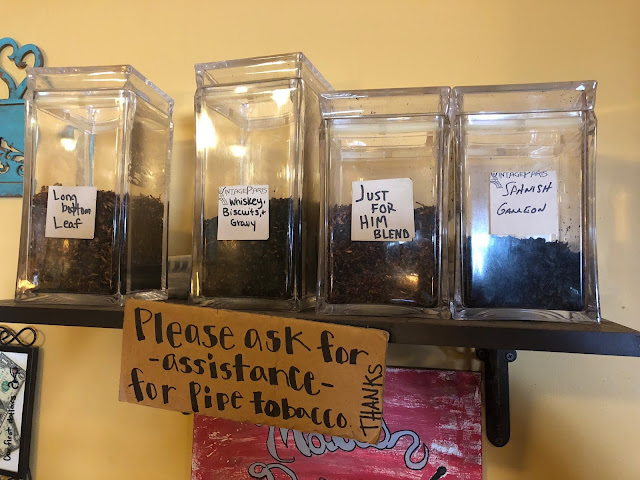 Long
bottom
Leaf
VINTAGE PARIS
Whiskey,
Biscuits, &
Gravy
JUST
FOR
HIM
BLEND
VINTAGE PARIS
SPANISH
GALLEON
Please ask for
-assistance-
for Pipe tobacco.
THANKS
Our first dollar